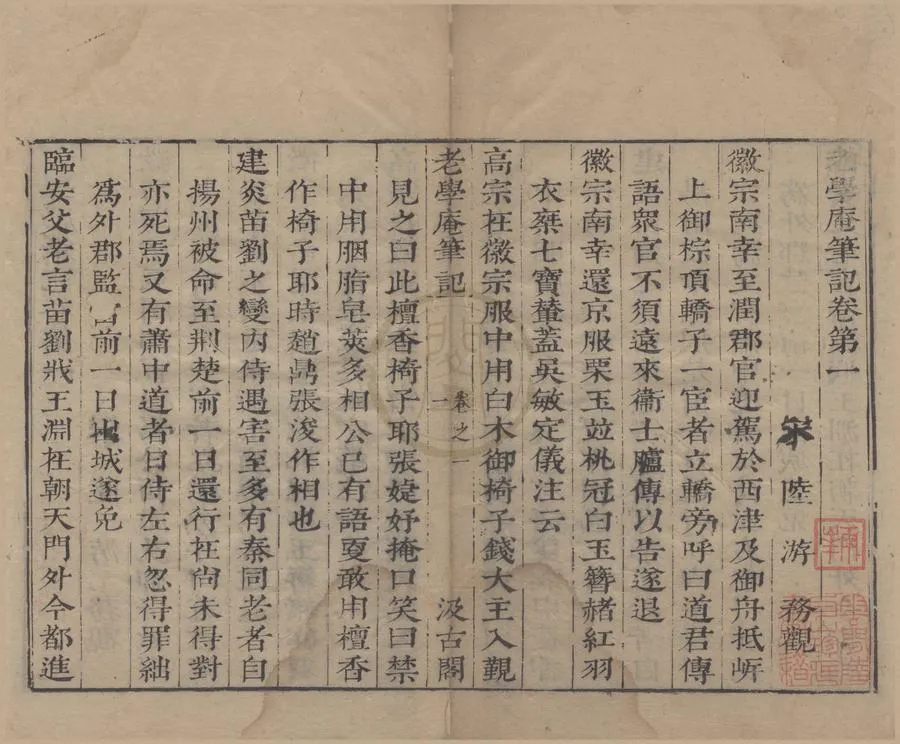 老學庵筆記卷第一
宋 陸 游 務觀
徽宗南幸至潤郡官迎駕於西津及御舟抵岍
上御棕頂轎子一宦者立轎旁呼曰道君傳
語眾官不須遠來衞士臚傳以告遂退
徽宗南幸還京服栗玉竝桃冠白玉簪赭紅羽
衣椉七寶輦蓋吳敏定儀注云
高宗在徽宗服中用白木御椅子錢大主入覲
老學庵筆記 卷之一 一 汲古閣
見之曰此檀香椅子耶張婕妤掩口笑曰禁
中用胭脂皂莢多相公已有語更敢用檀香
作椅子耶時趙鼎張浚作相也
建炎苗劉之變內侍遇害至多有秦同老者自
揚州被命至荆楚前一日還行在尚未得對
亦死焉又有蕭中道者日侍左右忽得罪絀
爲外郡監官前一日出城遂免
臨安父老言苗劉戕王淵在朝天門外今都進